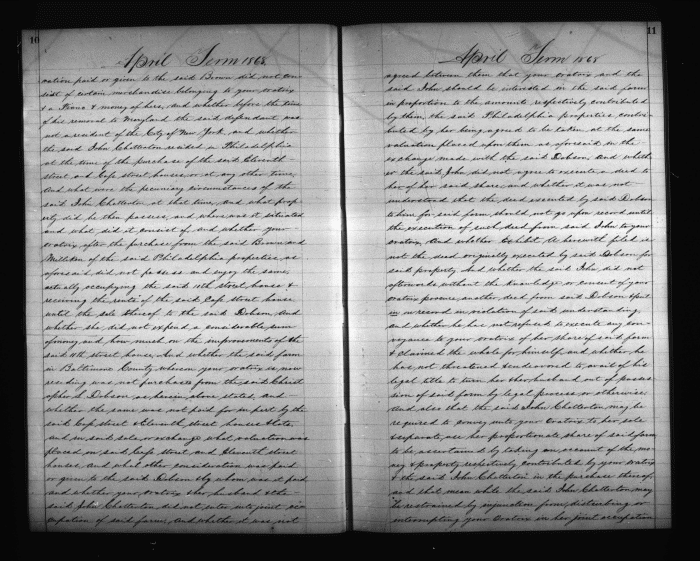 10
April Term 1868
ration paid or given to the said Brown did not con
sist of certain merchandise belonging to your oratrix
& a Piano & money of hers, and whether before the time
of his removal to Maryland the said defendant was
not a resident of the City of New York, and whether
the said John Chatterton resided in Philadelphia
at the time of the purchase of the said Eleventh
street and Cape street houses, or at any other time,
And what were the pecuniary circumstances of the
said John Chatterton at that time, and what prop
erty did he then possess, and where was it situated
and what did it consist of and whether your
oratrix after the purchase from the said Brown and
of the said Philadelphia properties, as
aforesaid did not possess and enjoy the same,
actually occupying the said 11th street house &
receiving the rents of the said Cape street house
until the sale thereof to the said Dobson, And
whether she did not expend a considerable sum
of money, and how much on the improvements of the
said 11th street house, And whether the said farm
in Baltimore County whereon your oratrix is now
residing was not purchased from the said Christ
opher Dobson as herein above stated, and
whether the same was not paid for in part by the
said Cape street & Eleventh street houses & lots
and in said sale or exchange what valuation was
placed on said Cape street and Eleventh street
houses, and what other consideration was paid
or given to the said Dobson & by whom was it paid
and whether your oratrix & her husband & the
said John Chatterton did not enter into joint oc
cupation of said farm, And whether it was not
11
April Term 1868
agreed between them that your oratrix and the
said John should be interested in the said farm
in proportion to the amounts respectively contributed
by them, the said Philadelphia properties contri
buted by her being agreed to be taken at the same
valuation placed upon them as aforesaid in the
exchange made with the said Dobson. And wheth
er the said John did not agree to execute a deed to
her of her said share, and whether it was not
understood that the deed executed by said Dobson
to him for said farm should not go upon record until
the execution of such deed from said John to your
oratrix, And whether Exhibit herewith filed is
not the deed originally executed by said Dobson for
said property And whether the said John did not
afterwards without the knowledge or consent of your
oratrix procure another deed from said Dobson & put
it on record in violation of said understanding,
and whether he has not refused to execute any con
veyance to your oratrix of her share of said farm
& claimed the whole for himself and whether he
has not threatened & endeavored to avail of his
legal title to turn her & her husband out of posses
sion of said farm by legal process or otherwise
And also that the said John Chatterton may be
required to convey unto your Oratrix to her sole
& separate use her proportionate share of said farm
to be ascertained by taking an account of the mo
ney & property respectively contributed by your oratrix
& the said John Chatterton in the purchase thereof,
and that mean while the said John Chatterton may
be restrained by injunction from disturbing or
interrupting your Oratrix in her joint occupation